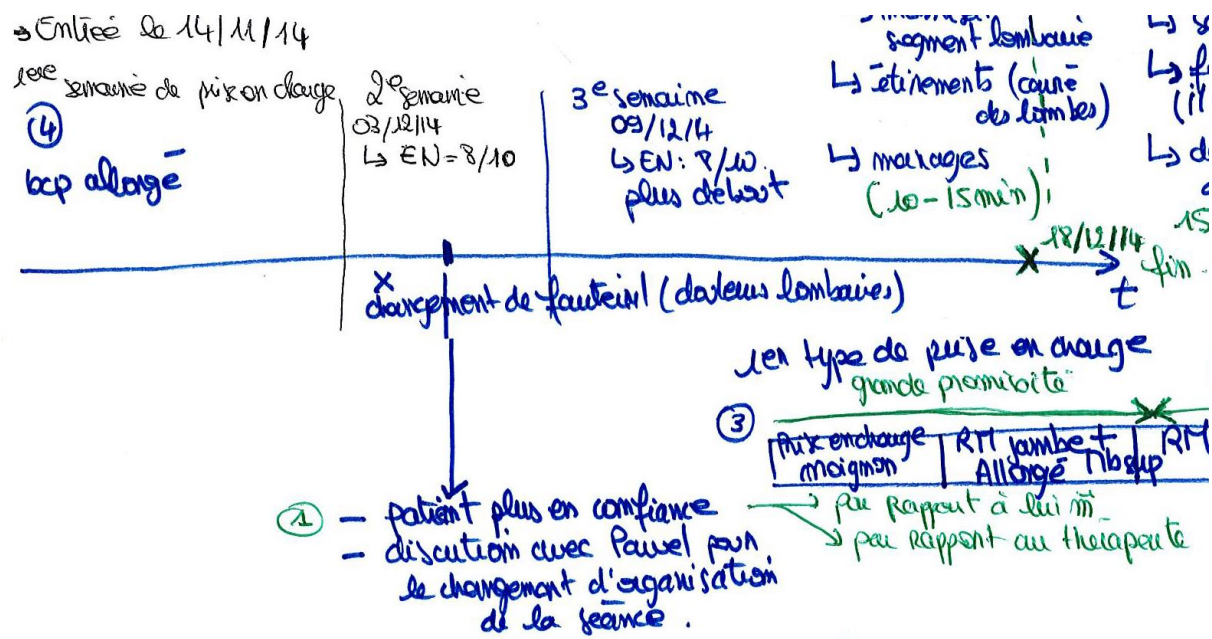 → Entrée le 14/11/14
1ere semaine de prise en charge
④
bcp allongé
2e semaine
03/12/14
↳ EN = 8/10
3e semaine
09/12/14
↳ EN: 8/10.
plus debout
segment lombaire
↳ étirements (carré
des lombes)
↳ massages
(10-15 min)
18/12/14
fin
t
changement de fauteuil (douleurs lombaires)
1er type de prise en charge
grande proximité
③
Prise en charge
moignon
RM jambe +
Allongé Mbsup
RM
① — patient plus en confiance
→ par rapport à lui m̄
→ par rapport au thérapeute
— discution avec Pawel pour
le changement d'organisation
de la séance.